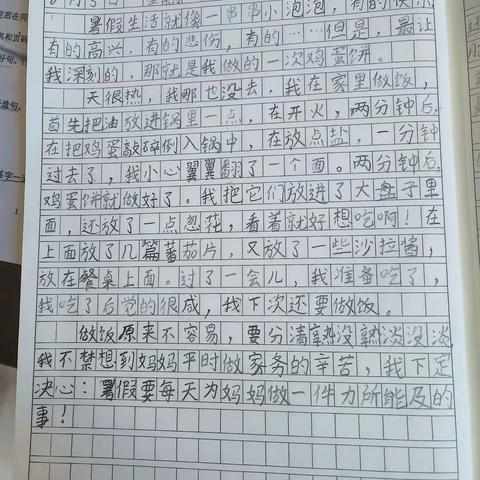 暑假生活就像一串串小泡泡，有的快乐
有的高兴，有的悲伤，有的……但是，最让
我深刻的，那就是我做的一次鸡蛋饼。
天很热，我哪也没去，我在家里做饭，
首先把油放进锅里一点，在开火，两分钟后，
在把鸡蛋敲碎倒入锅中，在放点盐，一分钟
过去了，我小心翼翼翻了一个面。两分钟后，
鸡蛋饼就做好了。我把它们放进了大盘子里
面，还放了一点忽花，看着就好想吃啊！在
上面放了几篇蕃茄片，又放了一些沙拉酱，
放在餐桌上面。过了一会儿，我准备吃了，
我吃了后觉的很咸，我下次还要做饭。
做饭原来不容易，要分清熟没熟淡没淡
我不禁想到妈妈平时做家务的辛苦，我下定
决心：暑假要每天为妈妈做一件力所能及的
事！